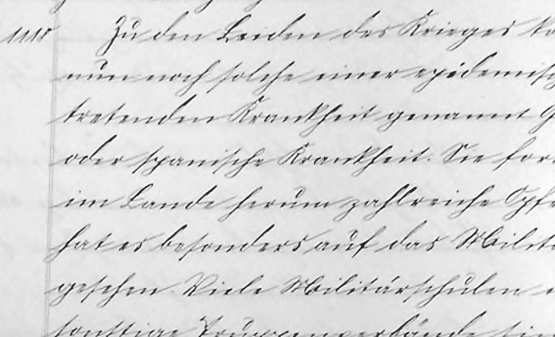 Zu den Leiden des Krieges
nun noch solche einer epidemisch
tretenden Krankheit genannt G
oder spanische Krankheit. Sie for
im Lande herum zahlreiche Opfe
hat es besonders auf das Milit
gesehen. Viele Militärschulen
sonstige Truppenverbände sin